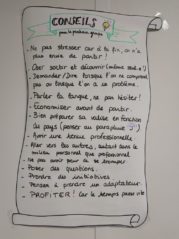 CONSEILS
pour le prochain groupe
- Ne pas stresser car à la fin, on n'a
plus envie de partir !
- Oser sortir et découvrir (même seul.e !)
- Demander / Dire lorsque l'on ne comprend
pas ou lorsque l'on a un problème.
- Parler la langue, ne pas hésiter !
- Economiser avant de partir
- Bien préparer sa valise en fonction
du pays (penser au parapluie)
- Avoir une tenue professionnelle
- Aller vers les autres, autant dans le
milieu personnel que professionnel
- ne pas avoir peur de se tromper
- Poser des questions.
- Prendre des initiatives
- Penser à prendre un adaptateur
- PROFITER ! Car le temps passe vite